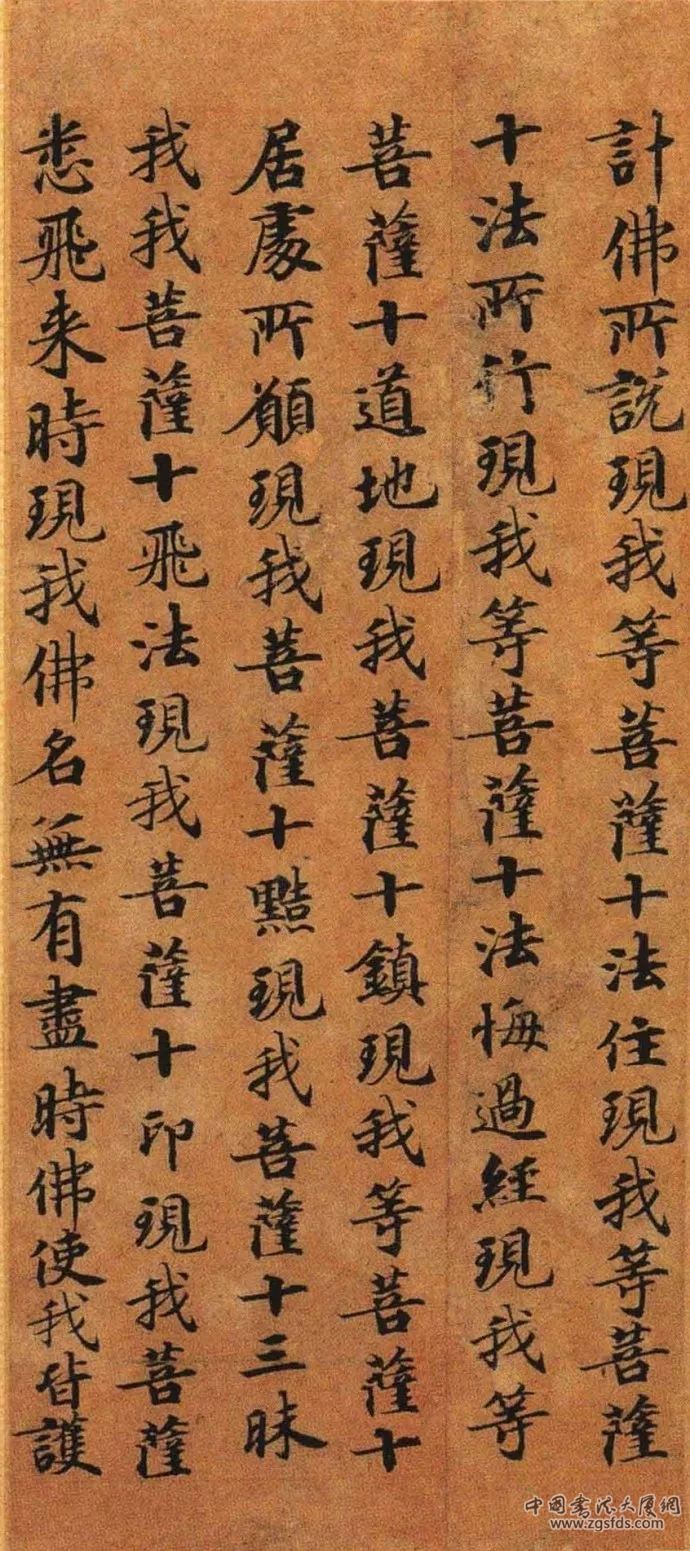 計佛所説現我等菩薩十法住現我等菩薩
十法所行現我等菩薩十法悔過經現我等
菩薩十道地現我菩薩十鎮現我等菩薩十
居處所願現我菩薩十黠現我菩薩十三昧
我我菩薩十飛法現我菩薩十印現我菩薩
悉飛来時現我佛名無有盡時佛使我皆護
中国书法大厦網
www.zgsfds.com